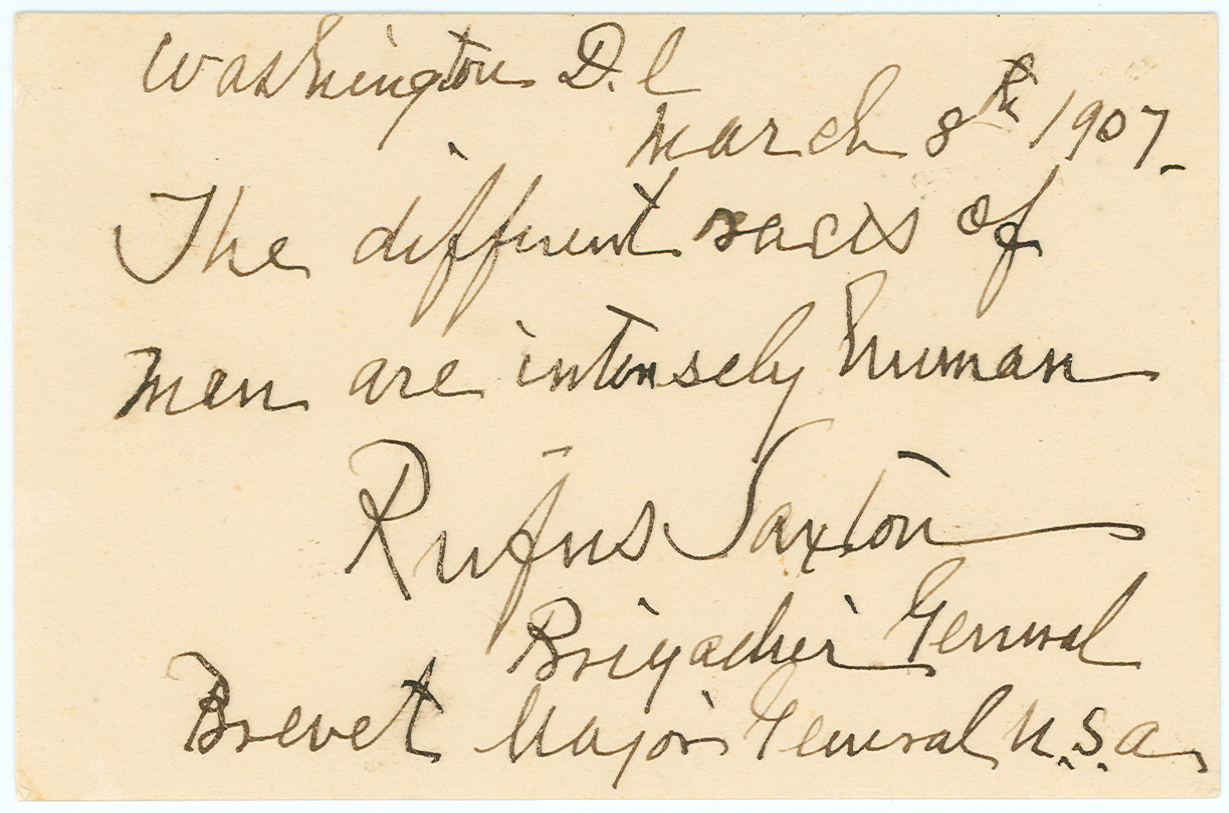 Washington D.C
March 8th 1907.
The different races of
men are intensely human
Rufus Saxton
Brigadier General
Brevet Major General U.S.a.